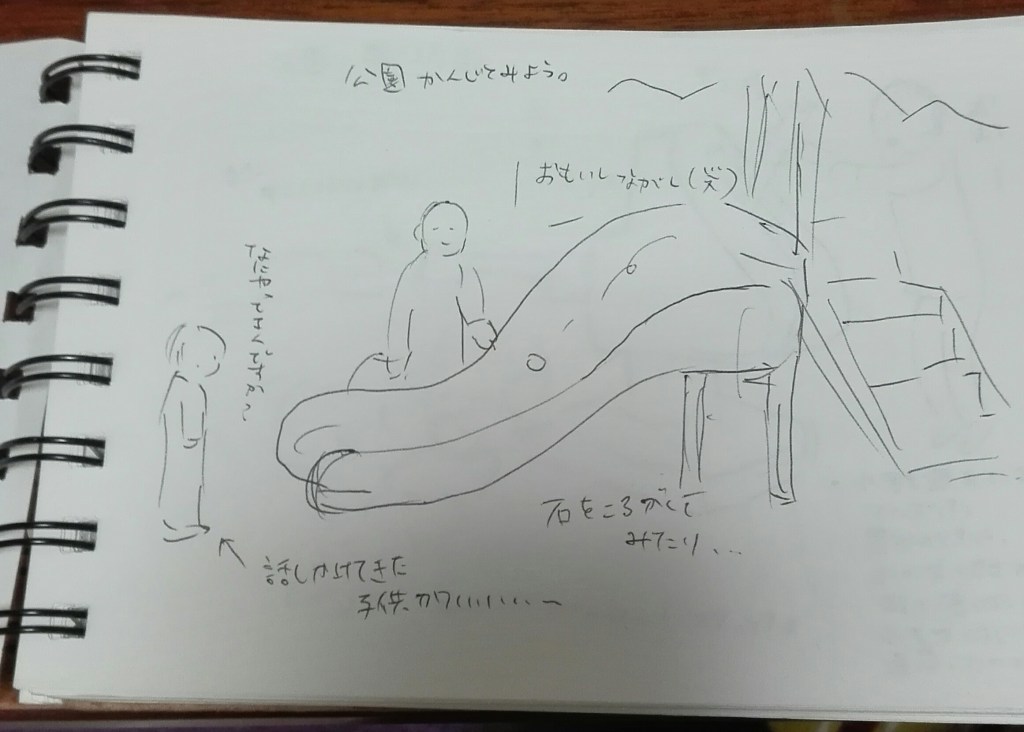 公園 かんじてみよう。
おもいしながし(笑)
なにやってるんですか?
石をころがして
みたり、…
話しかけてきた
子供、カワいいいい〜